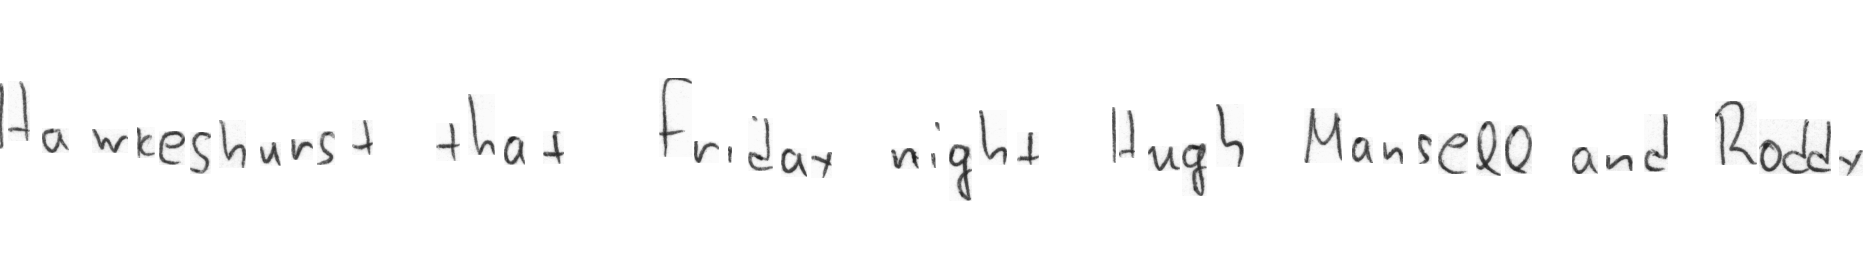 Hawkeshurst that Friday night Hugh Mansell and Roddy